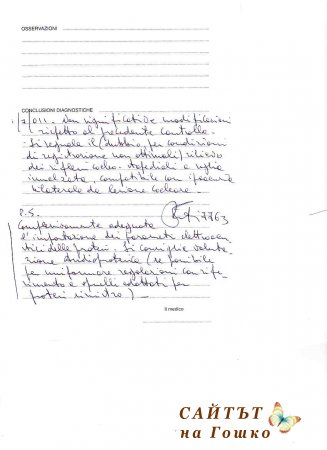 OSSERVAZIONI
CONCLUSIONI DIAGNOSTICHE
7/011. Non significative modificazioni
rispetto al precedente controllo.
Si segnala il (dubbio, per condizioni
di registrazione non ottimali) rilievo
dei riflessi cocleo-stapediali a soglia
innalzata, compatibile con ipoacusia
bilaterale da lesione cocleare.
P.S.
7763
Complessivamente adeguata
l'impostazione dei parametri elettroacu
stici delle protesi. Si consiglia valuta
zione audioprotesica (se possibile
per uniformare regolazioni con rife
rimento a quelli adottati per
protesi sinistra) -
Il medico
САЙТЪТ
на Гошко